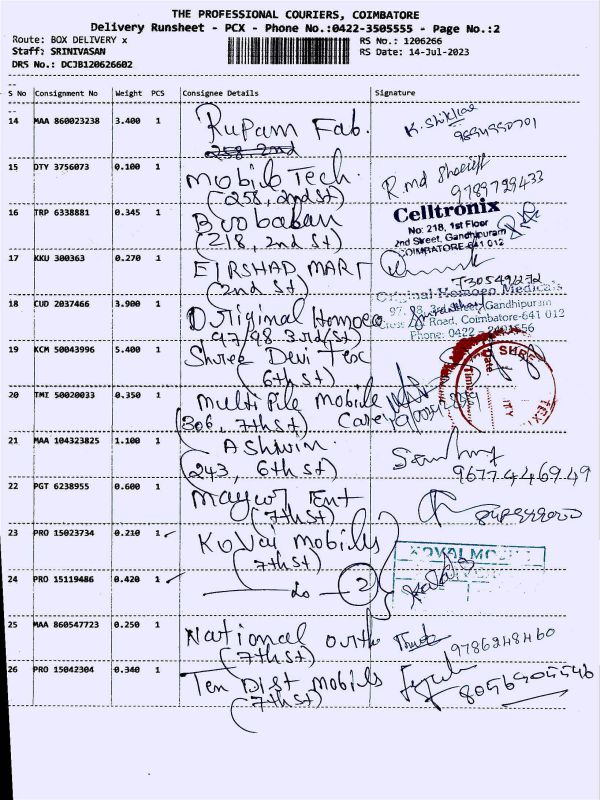 THE PROFESSIONAL COURIERS, COIMBATORE
Delivery Runsheet - PCX - Phone No.:0422-3505555 - Page No.:2
Route: BOX DELIVERY x
RS No.: 1206266
Staff: SRINIVASAN
RS Date: 14-Jul-2023
DRS No.: DCJB120626602
S No Consignment No Weight PCS Consignee Details Signature
14 MAA 860023238 3.400 1 Rupam Fab.
258 2nd
15 DTY 3756073 0.100 1 Mobile Tech.
(258, 2nd St)
9789729433
16 TRP 6338881 0.345 1
(218, 2nd St)
Celltronix
No: 218, 1st Floor
2nd Street, Gandhipuram
COIMBATORE-641 012
17 KKU 300363 0.270 1 MART
(2nd St)
18 CUD 2037466 3.900 1 Original Homoeo
97/98 3rd St)
Original Homoeo Medicals
97, 98, 3rd Street, Gandhipuram
Road, Coimbatore-641 012
Phone: 0422 -
19 KCM 50043996 5.400 1 Shree Devi Tex
(6th St)
SHREE
Date:
Time:
TEX
20 TMI 50020033 0.350 1 Multiple Mobile
(306, 7th St) Care
21 MAA 104323825 1.100 1 Ashwin
(243, 6th St)
9677446949
22 PGT 6238955 0.600 1 Mayur Ent
(7th St)
23 PRO 15023734 0.210 1 Kovai Mobiles
(7th St)
24 PRO 15119486 0.420 1 do 2
25 MAA 860547723 0.250 1 National Orth
(7th St)
9786248460
26 PRO 15042304 0.340 1 Ten Dist Mobiles
(7th St)
8056405546